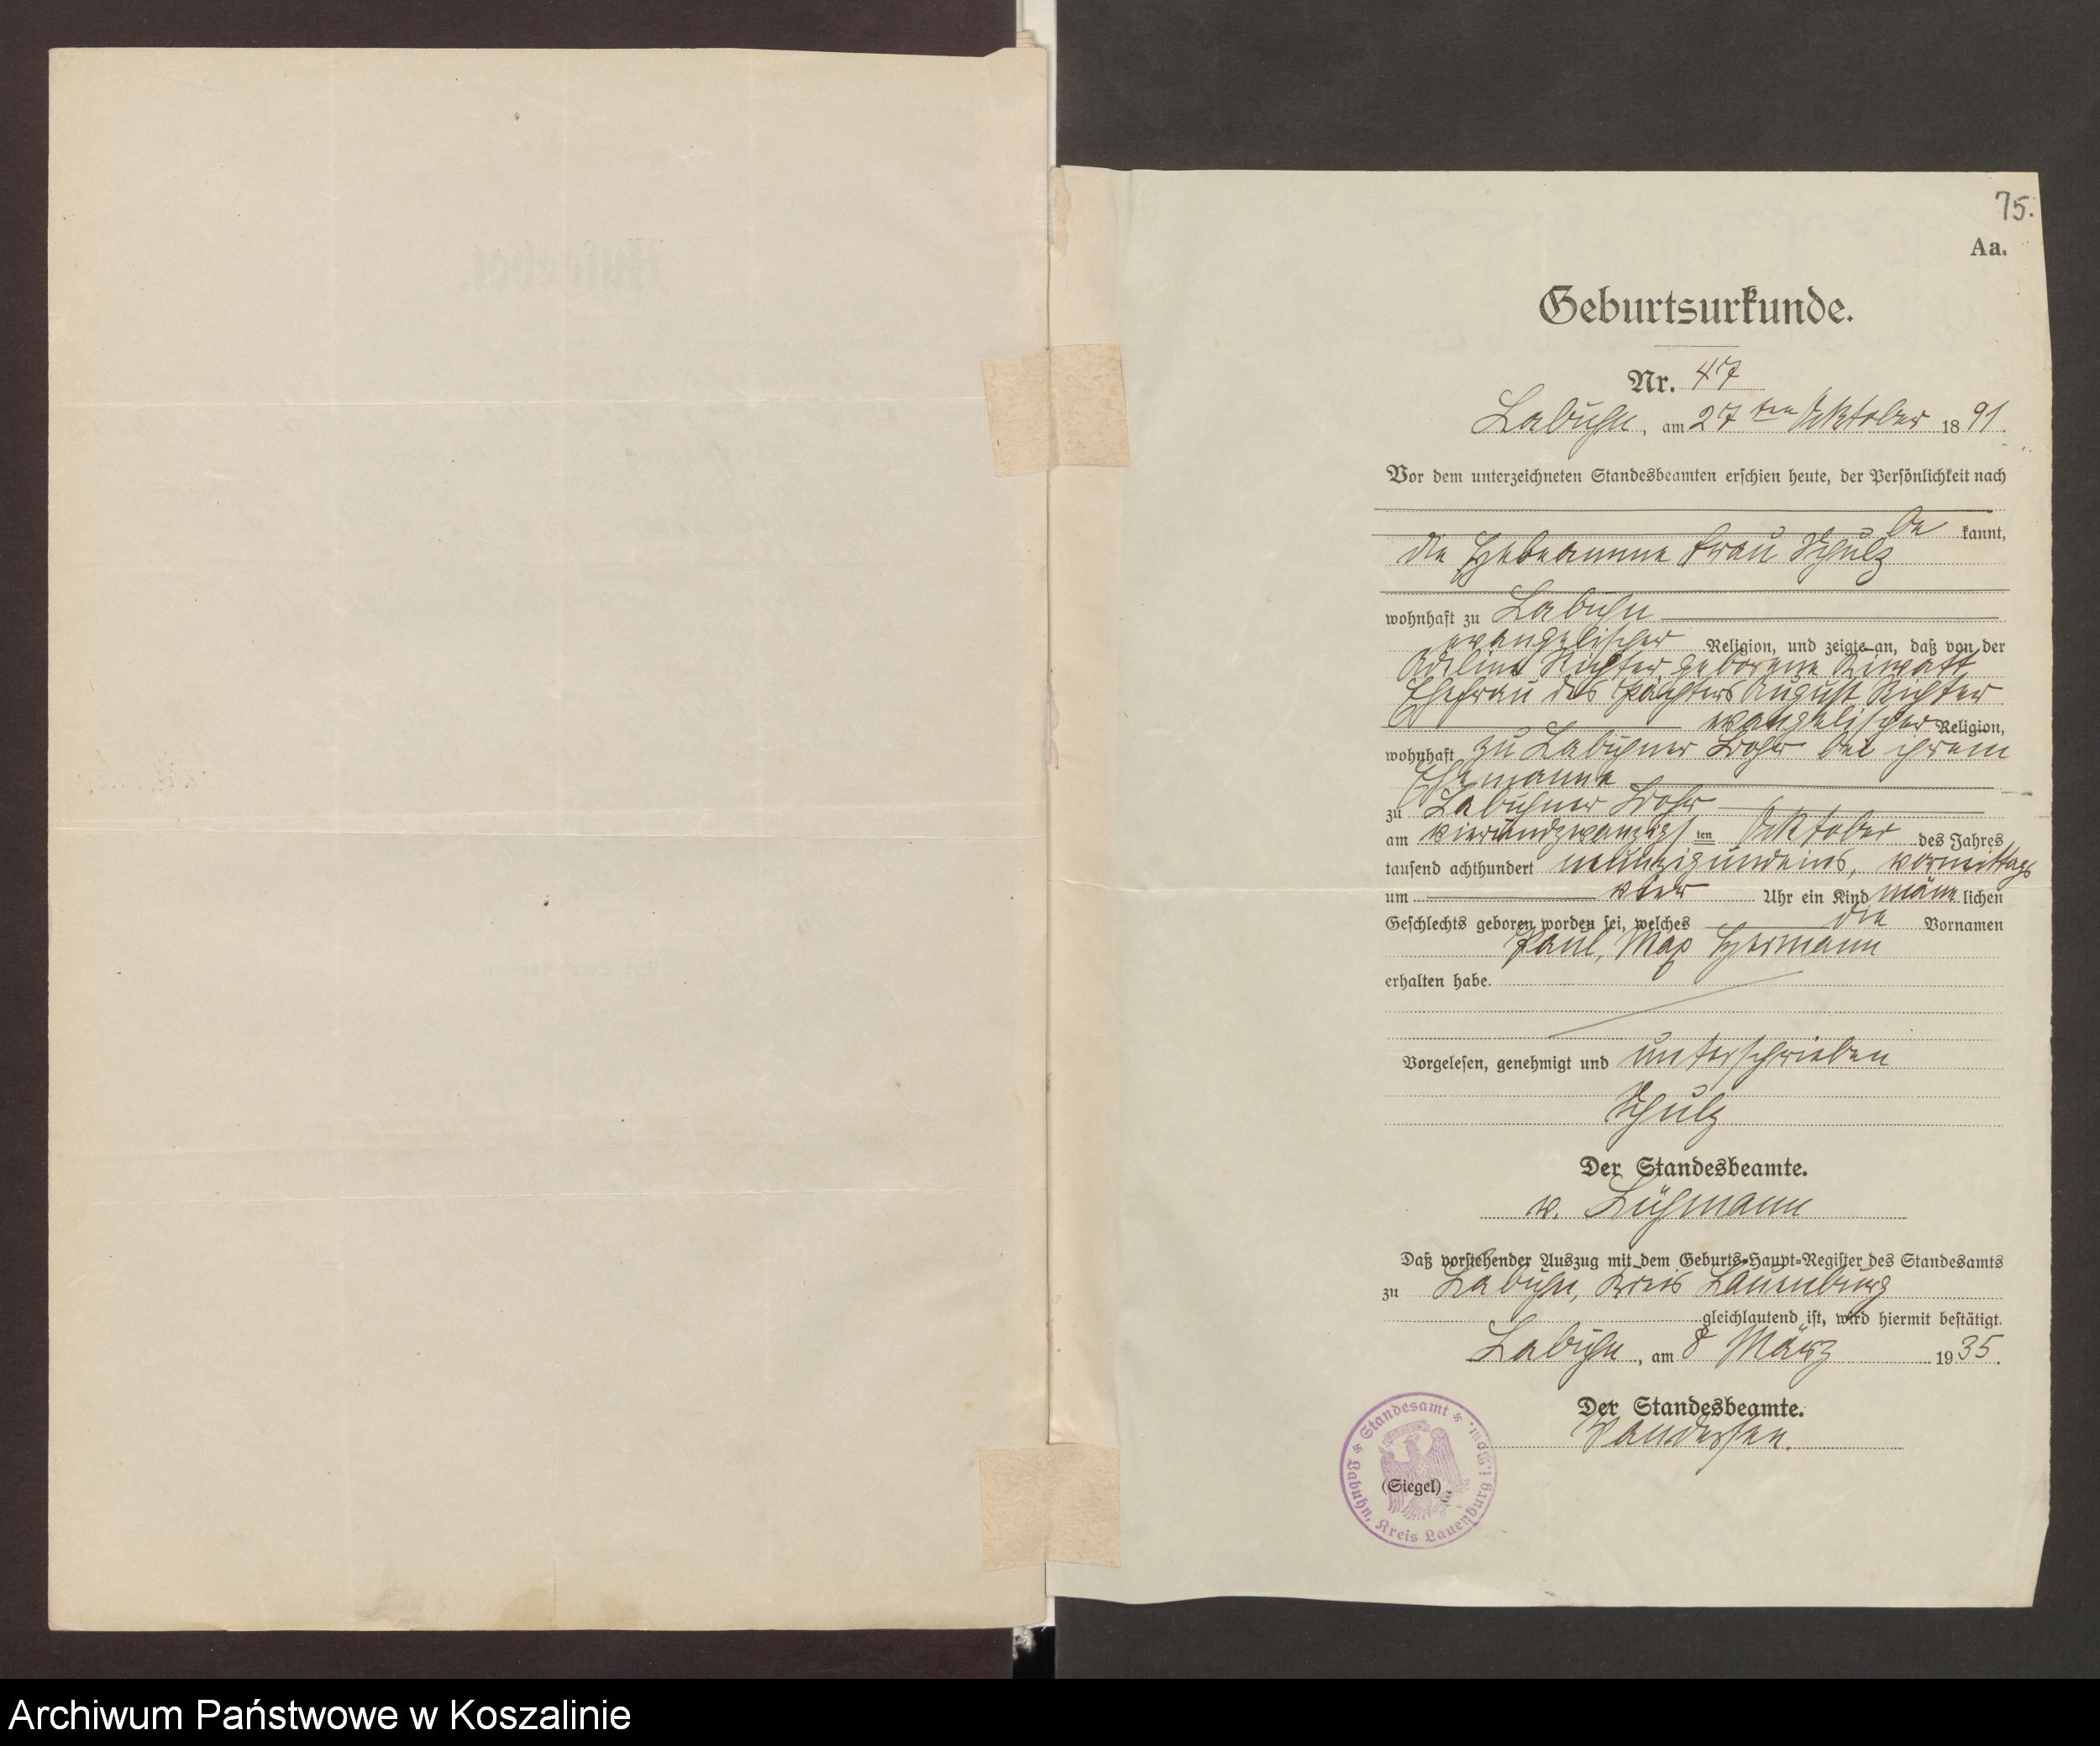 75.
Aa.
Geburtsurkunde.
Nr. 47
Labuhn, am 27ten Oktober 1891.
Vor dem unterzeichneten Standesbeamten erschien heute, der Persönlichkeit nach
be kannt,
die Hebeamme Frau Schulz
wohnhaft zu Labuhn
evangelischer Religion, und zeigte an, daß von der
Adeline Richter geborene
Ehefrau des Pächters August Richter
evangelischer Religion,
wohnhaft zu Labuhner bei ihrem
Ehemanne
zu Labuhner
am vierundzwanzigsten Oktober des Jahres
tausend achthundert neunzigundeins, vormittags
um vier Uhr ein Kind männlichen
Geschlechts geboren worden sei, welches die Vornamen
Paul, Max Hermann
erhalten habe.
Vorgelesen, genehmigt und unterschrieben
Schulz
Der Standesbeamte.
v. Lühmann
Daß vorstehender Auszug mit dem Geburts-Haupt-Register des Standesamts
zu Labuhn, Kreis Lauenburg
gleichlautend ist, wird hiermit bestätigt.
Labuhn, am 8 März 1935.
Der Standesbeamte.
(Siegel)
Standesamt Labuhn, Kreis Lauenburg i. Pom.
Archiwum Państwowe w Koszalinie